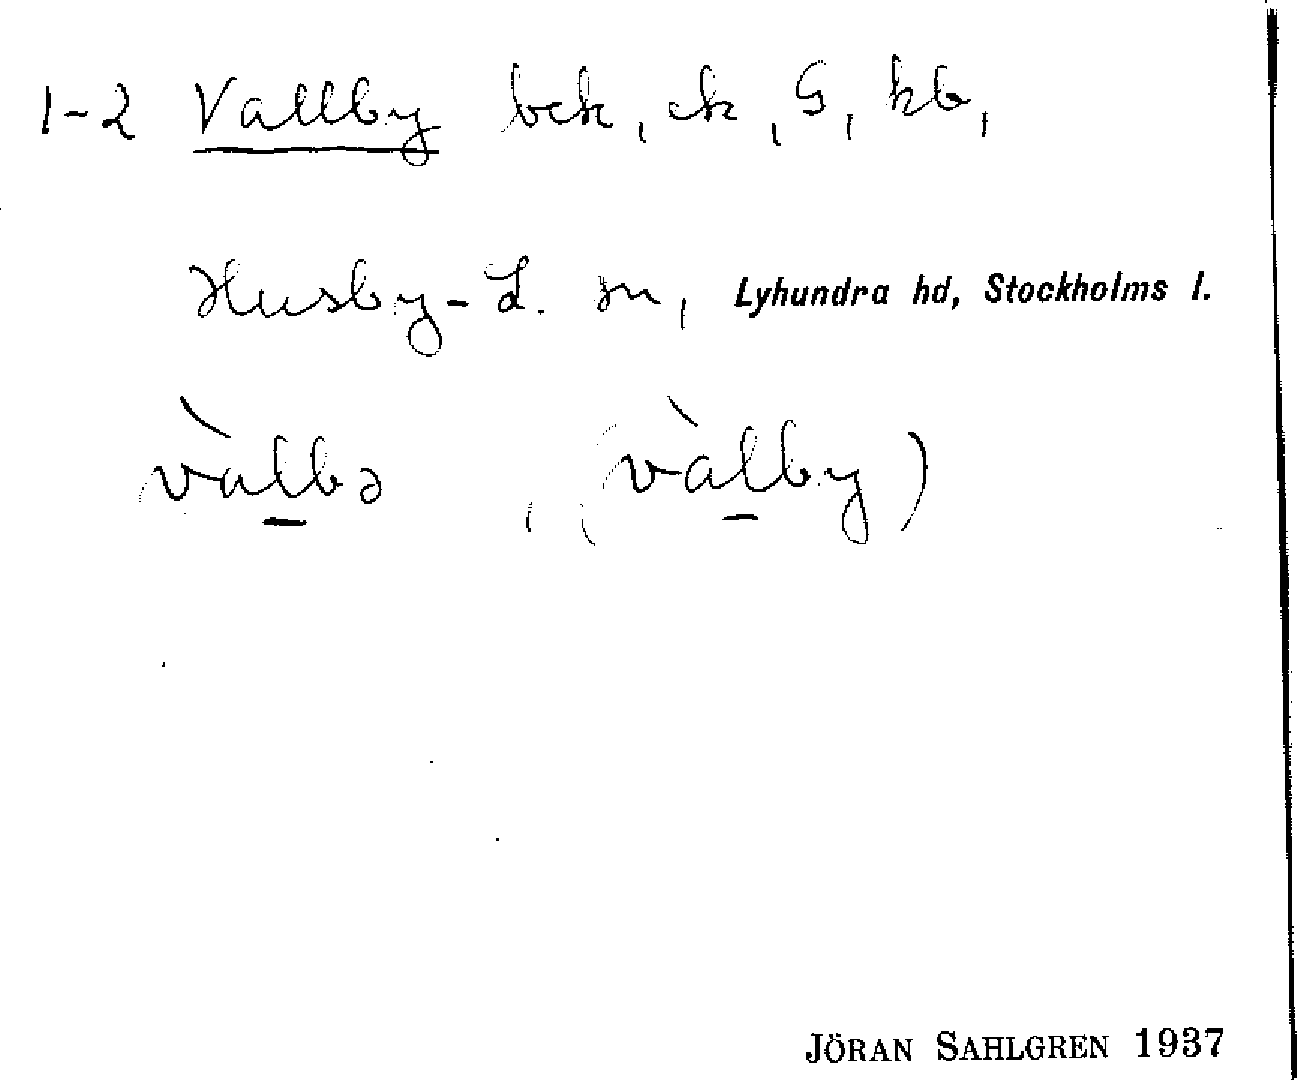 1-2 Vallby bek, ek, G, kb,
Husby-L. sn, Lyhundra hd, Stockholms l.
vàlbə, (vàlby)
JÖRAN SAHLGREN 1937